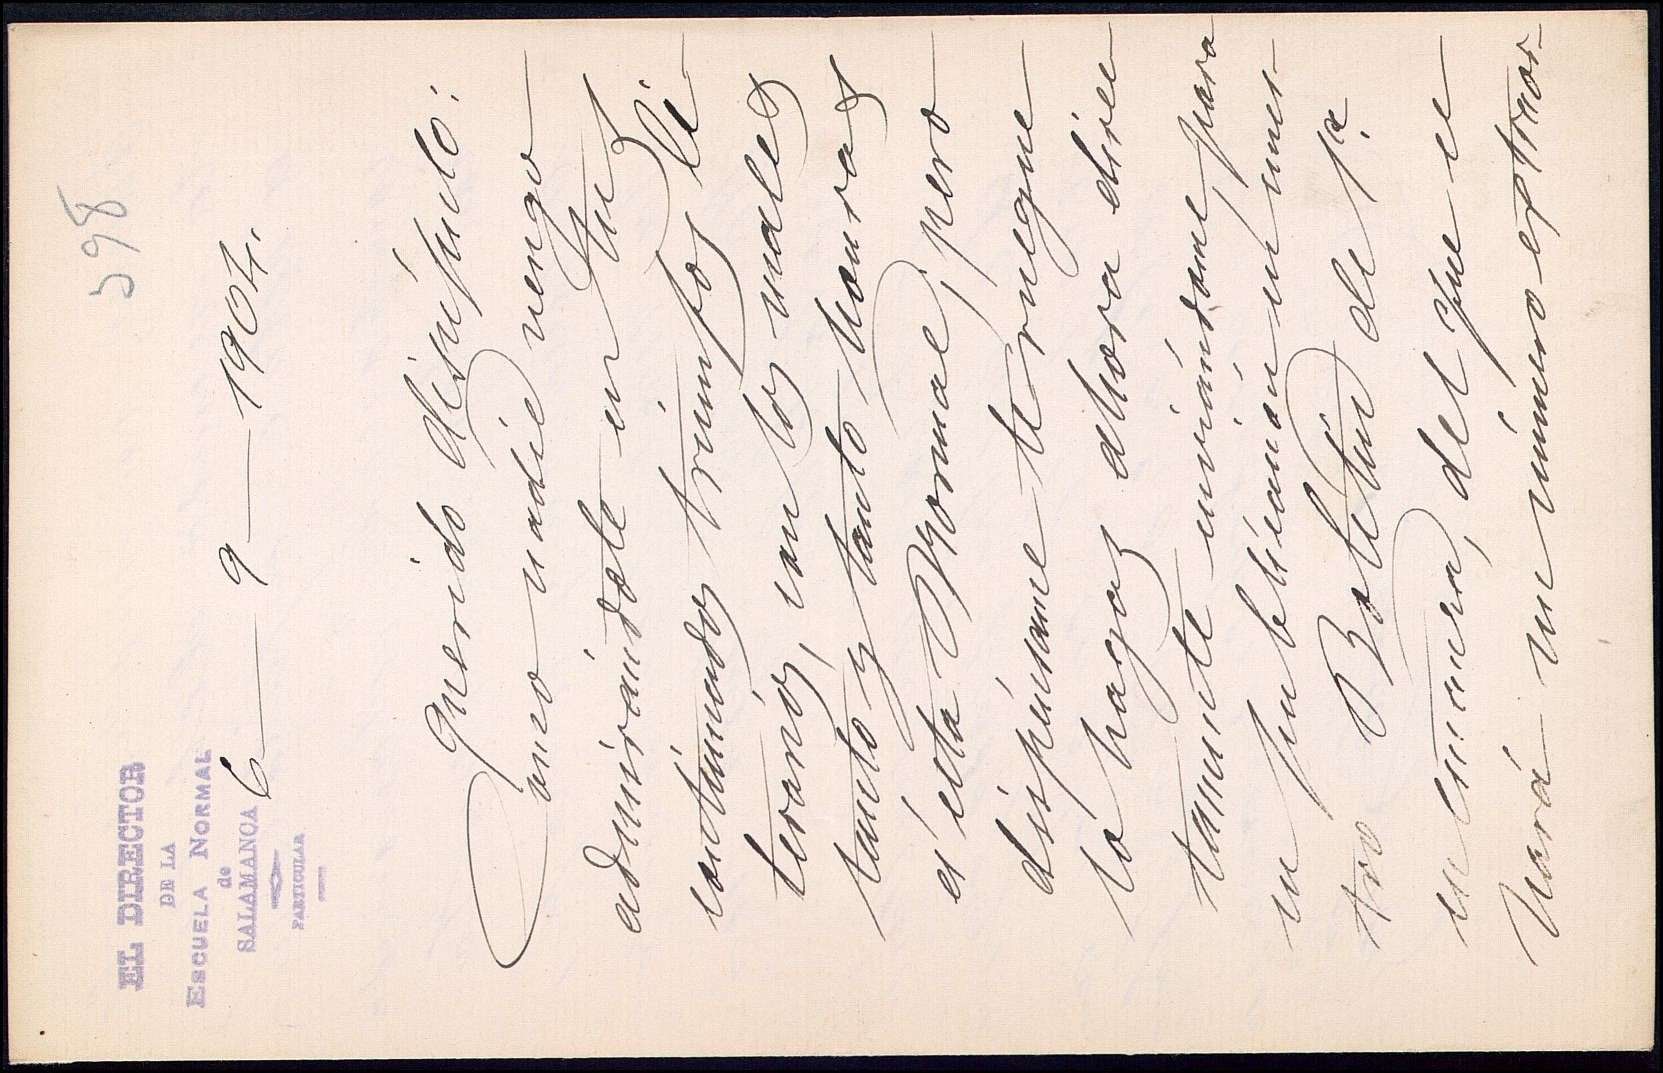 398
EL DIRECTOR
DE LA
ESCUELA NORMAL
de
SALAMANCA
PARTICULAR
6 — 9 — 1904.
Querido discípulo:
como nadie vengo
admirándote en tus
continuados triunfos li-
terarios, con los cuales
tanto y tanto honras
á ésta Normal; pero
dispénsame te ruegue
lo hagas ahora direc
tamente enviándome, para
su publicación en nues-
tro Boletín de 1ª
enseñanza, del que se
hará un número extraor-